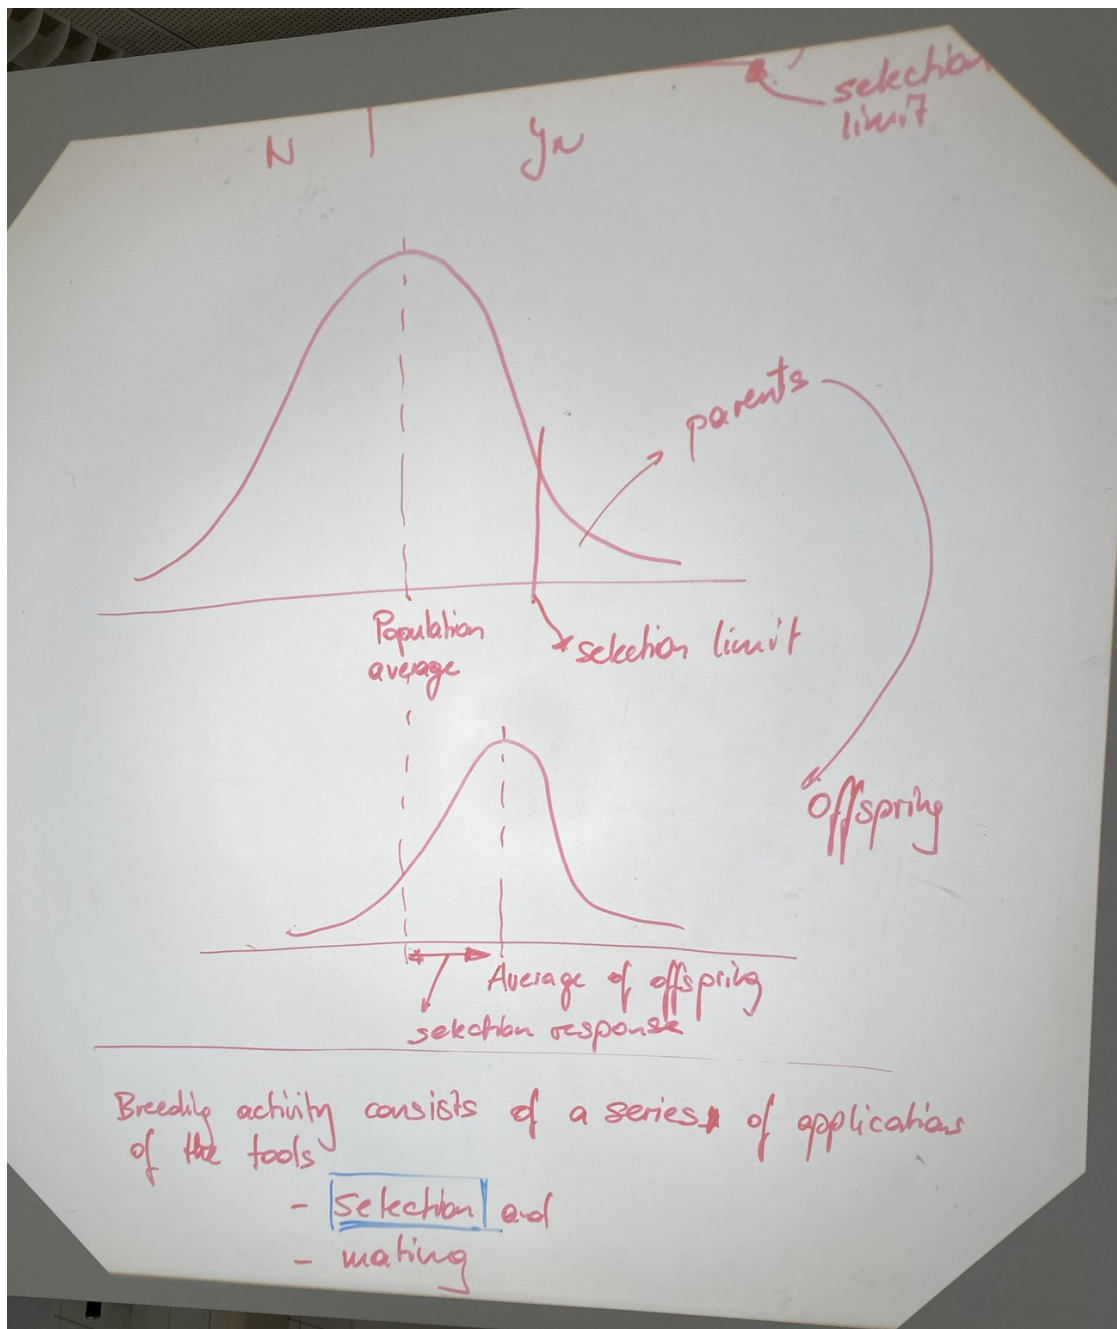 selection
limit
N | yN
parents
Population
average
selection limit
Offspring
Average of offspring
selection response
Breeding activity consists of a series of applications
of the tools
- selection and
- mating